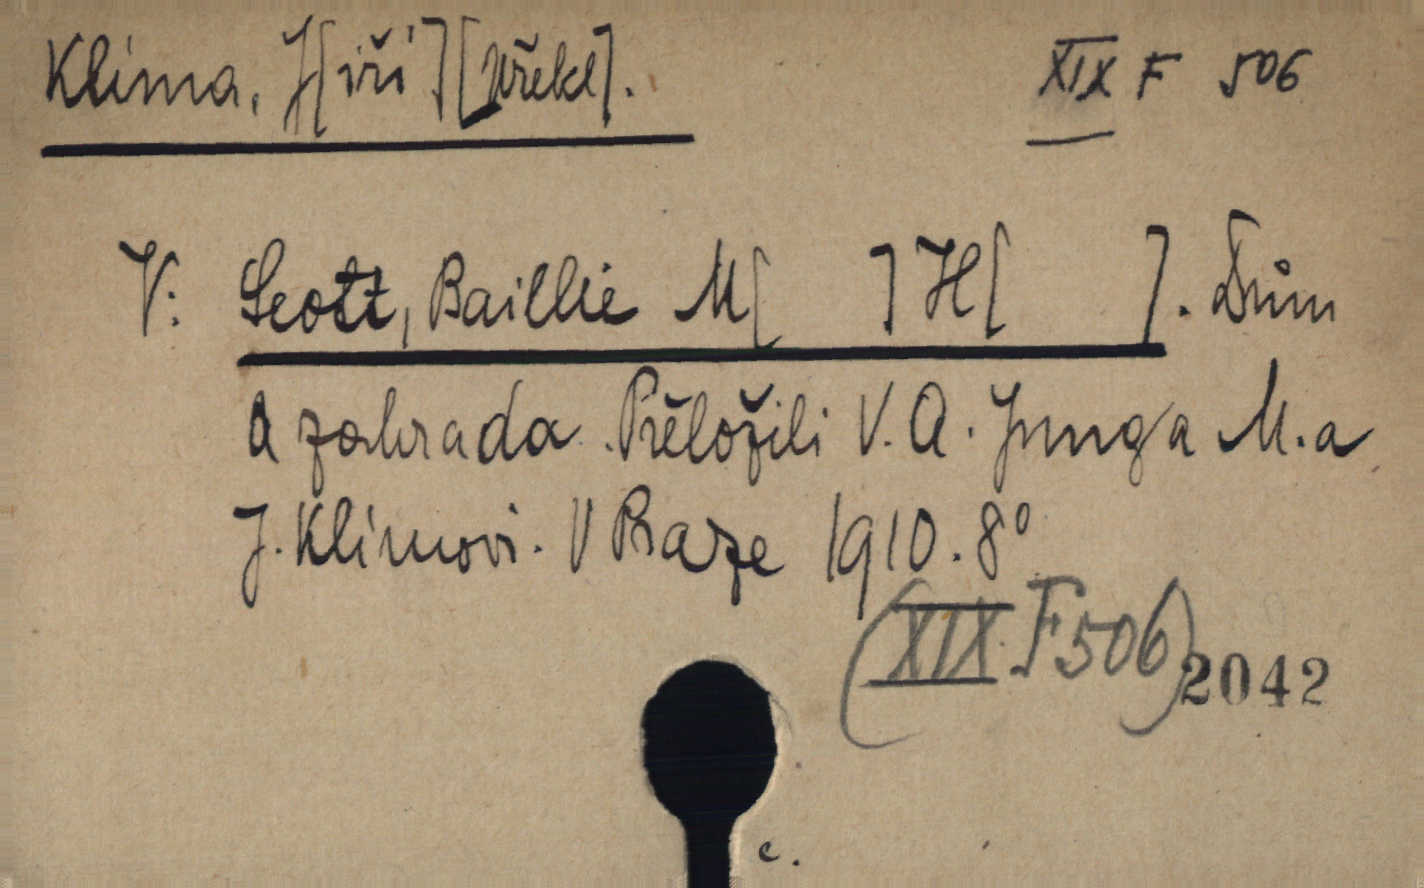 Klima, J[iří] [překl].
XIX F 506
V: Scott, Baillie M[ ] H[ ]. Dům
a zahrada. Přeložili V. A. Jung a M. a
J. Klimovi. V Praze 1910. 8°
(XIX F 506)
2042
c.